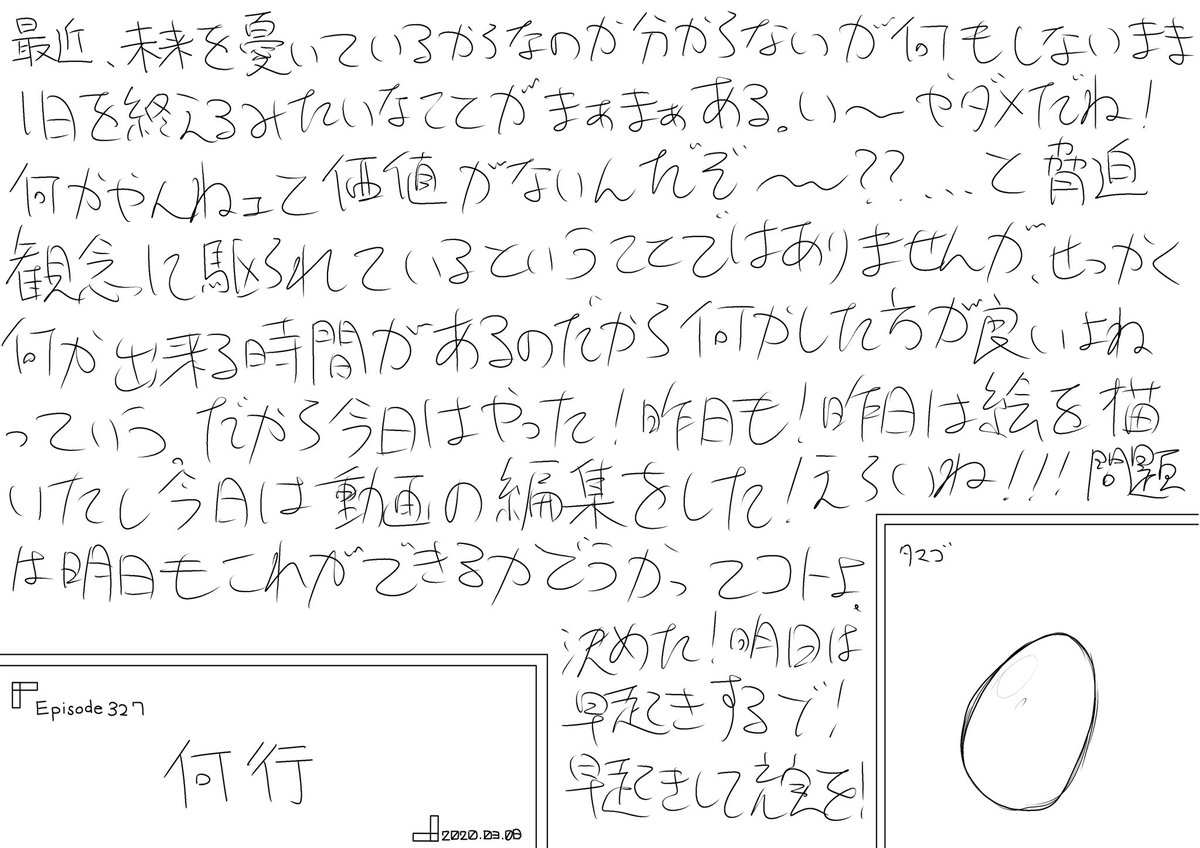 最近、未来を憂いているからなのか分からないが何もしないまま
1日を終えるみたいなことがまぁまぁある。い〜やダメだね！
何かやんねェと価値がないんだぞ〜〜??...と脅迫
観念に駆られているということではありませんが、せっかく
何か出来る時間があるのだから何かした方が良いよね
っていう。だから今日はやった！昨日も！昨日は絵を描
いたし今日は動画の編集をした！えらいね!!!問題
は明日もこれができるかどうかってコトよ。
決めた！明日は
早起きするで！
早起きして充実を！
Episode 327
何行
2020.03.08
タマゴ